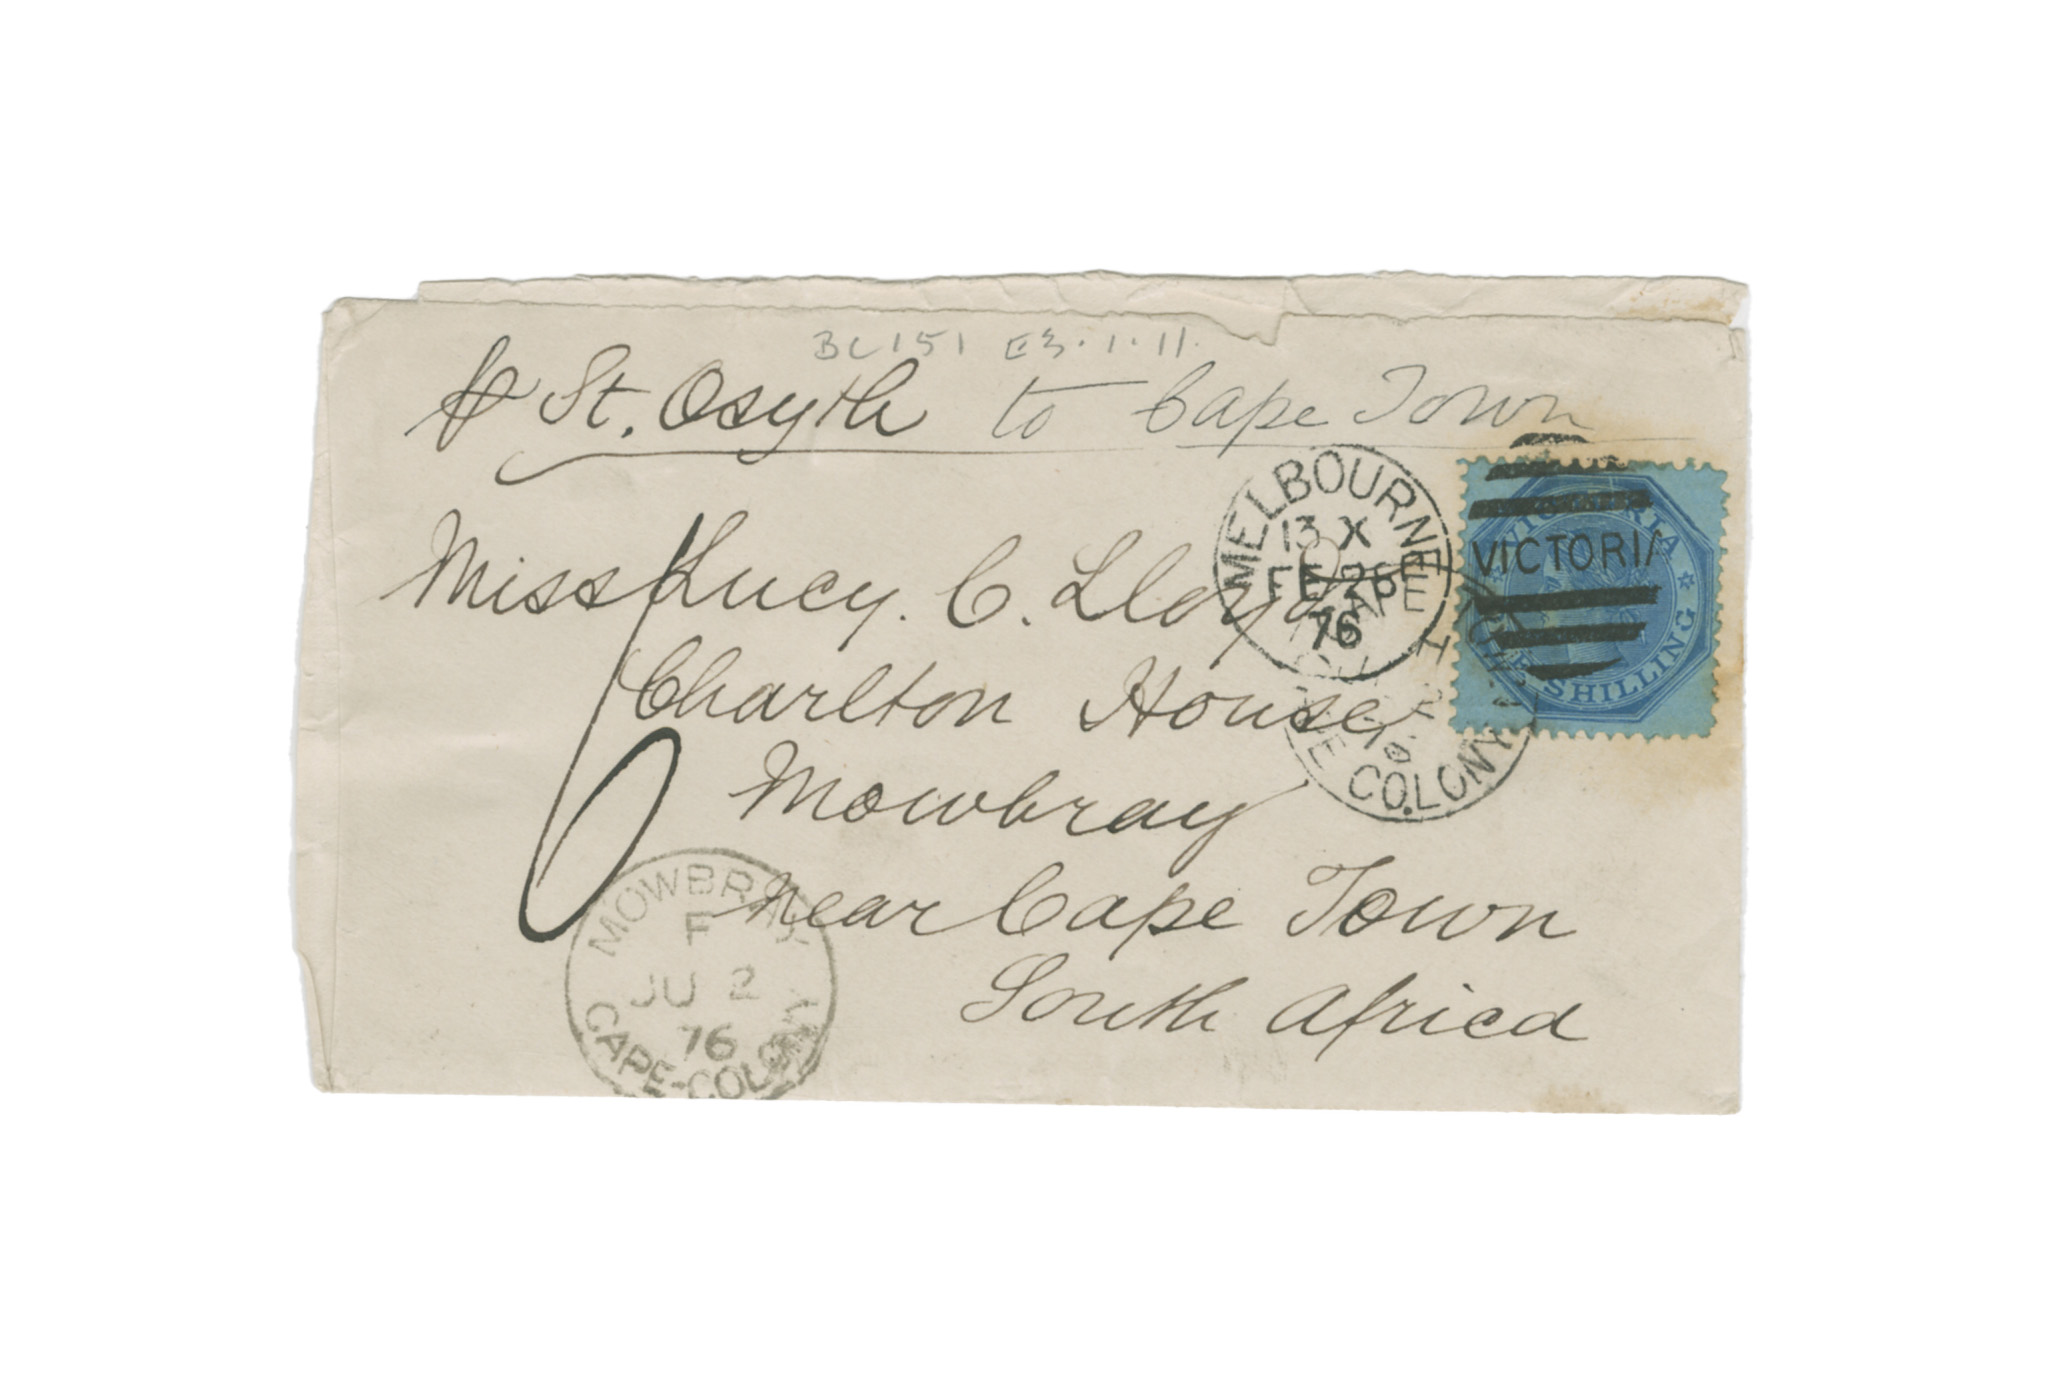 BC151 E3.1.11.
St. Osyth to Cape Town
Miss Lucy. C. Lloyd
Charlton House
Mowbray
near Cape Town
South Africa
MELBOURNE
13 X
FE 26
76
VICTORIA
VICTORIA
ONE SHILLING
COLONY
MOWBRAY
F
JU 2
76
CAPE-COLONY